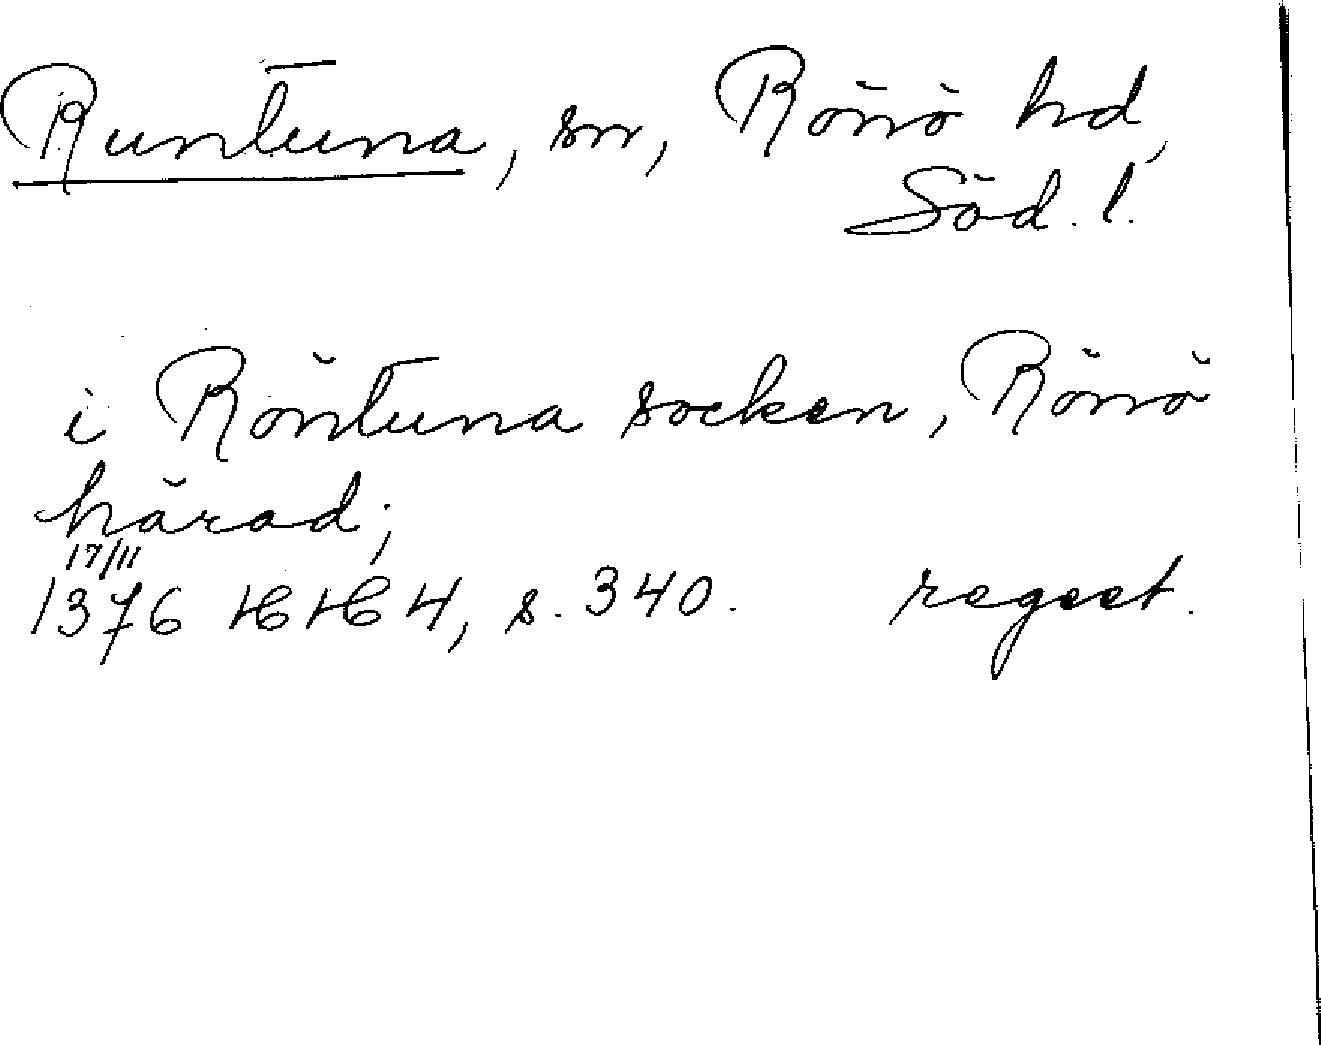 Runtuna, sn, Rönö hd,
Söd. l.
i Röntuna socken, Rönö
härad;
17/11
1376 HH 4, s. 340. regest.